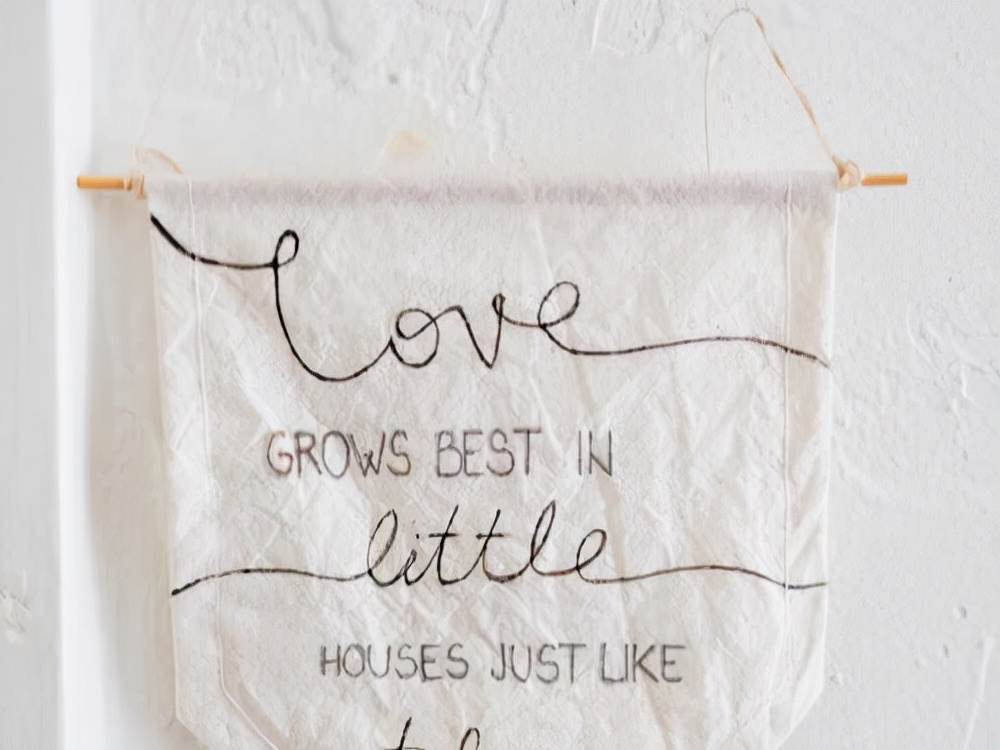 love
GROWS BEST IN
little
HOUSES JUST LIKE